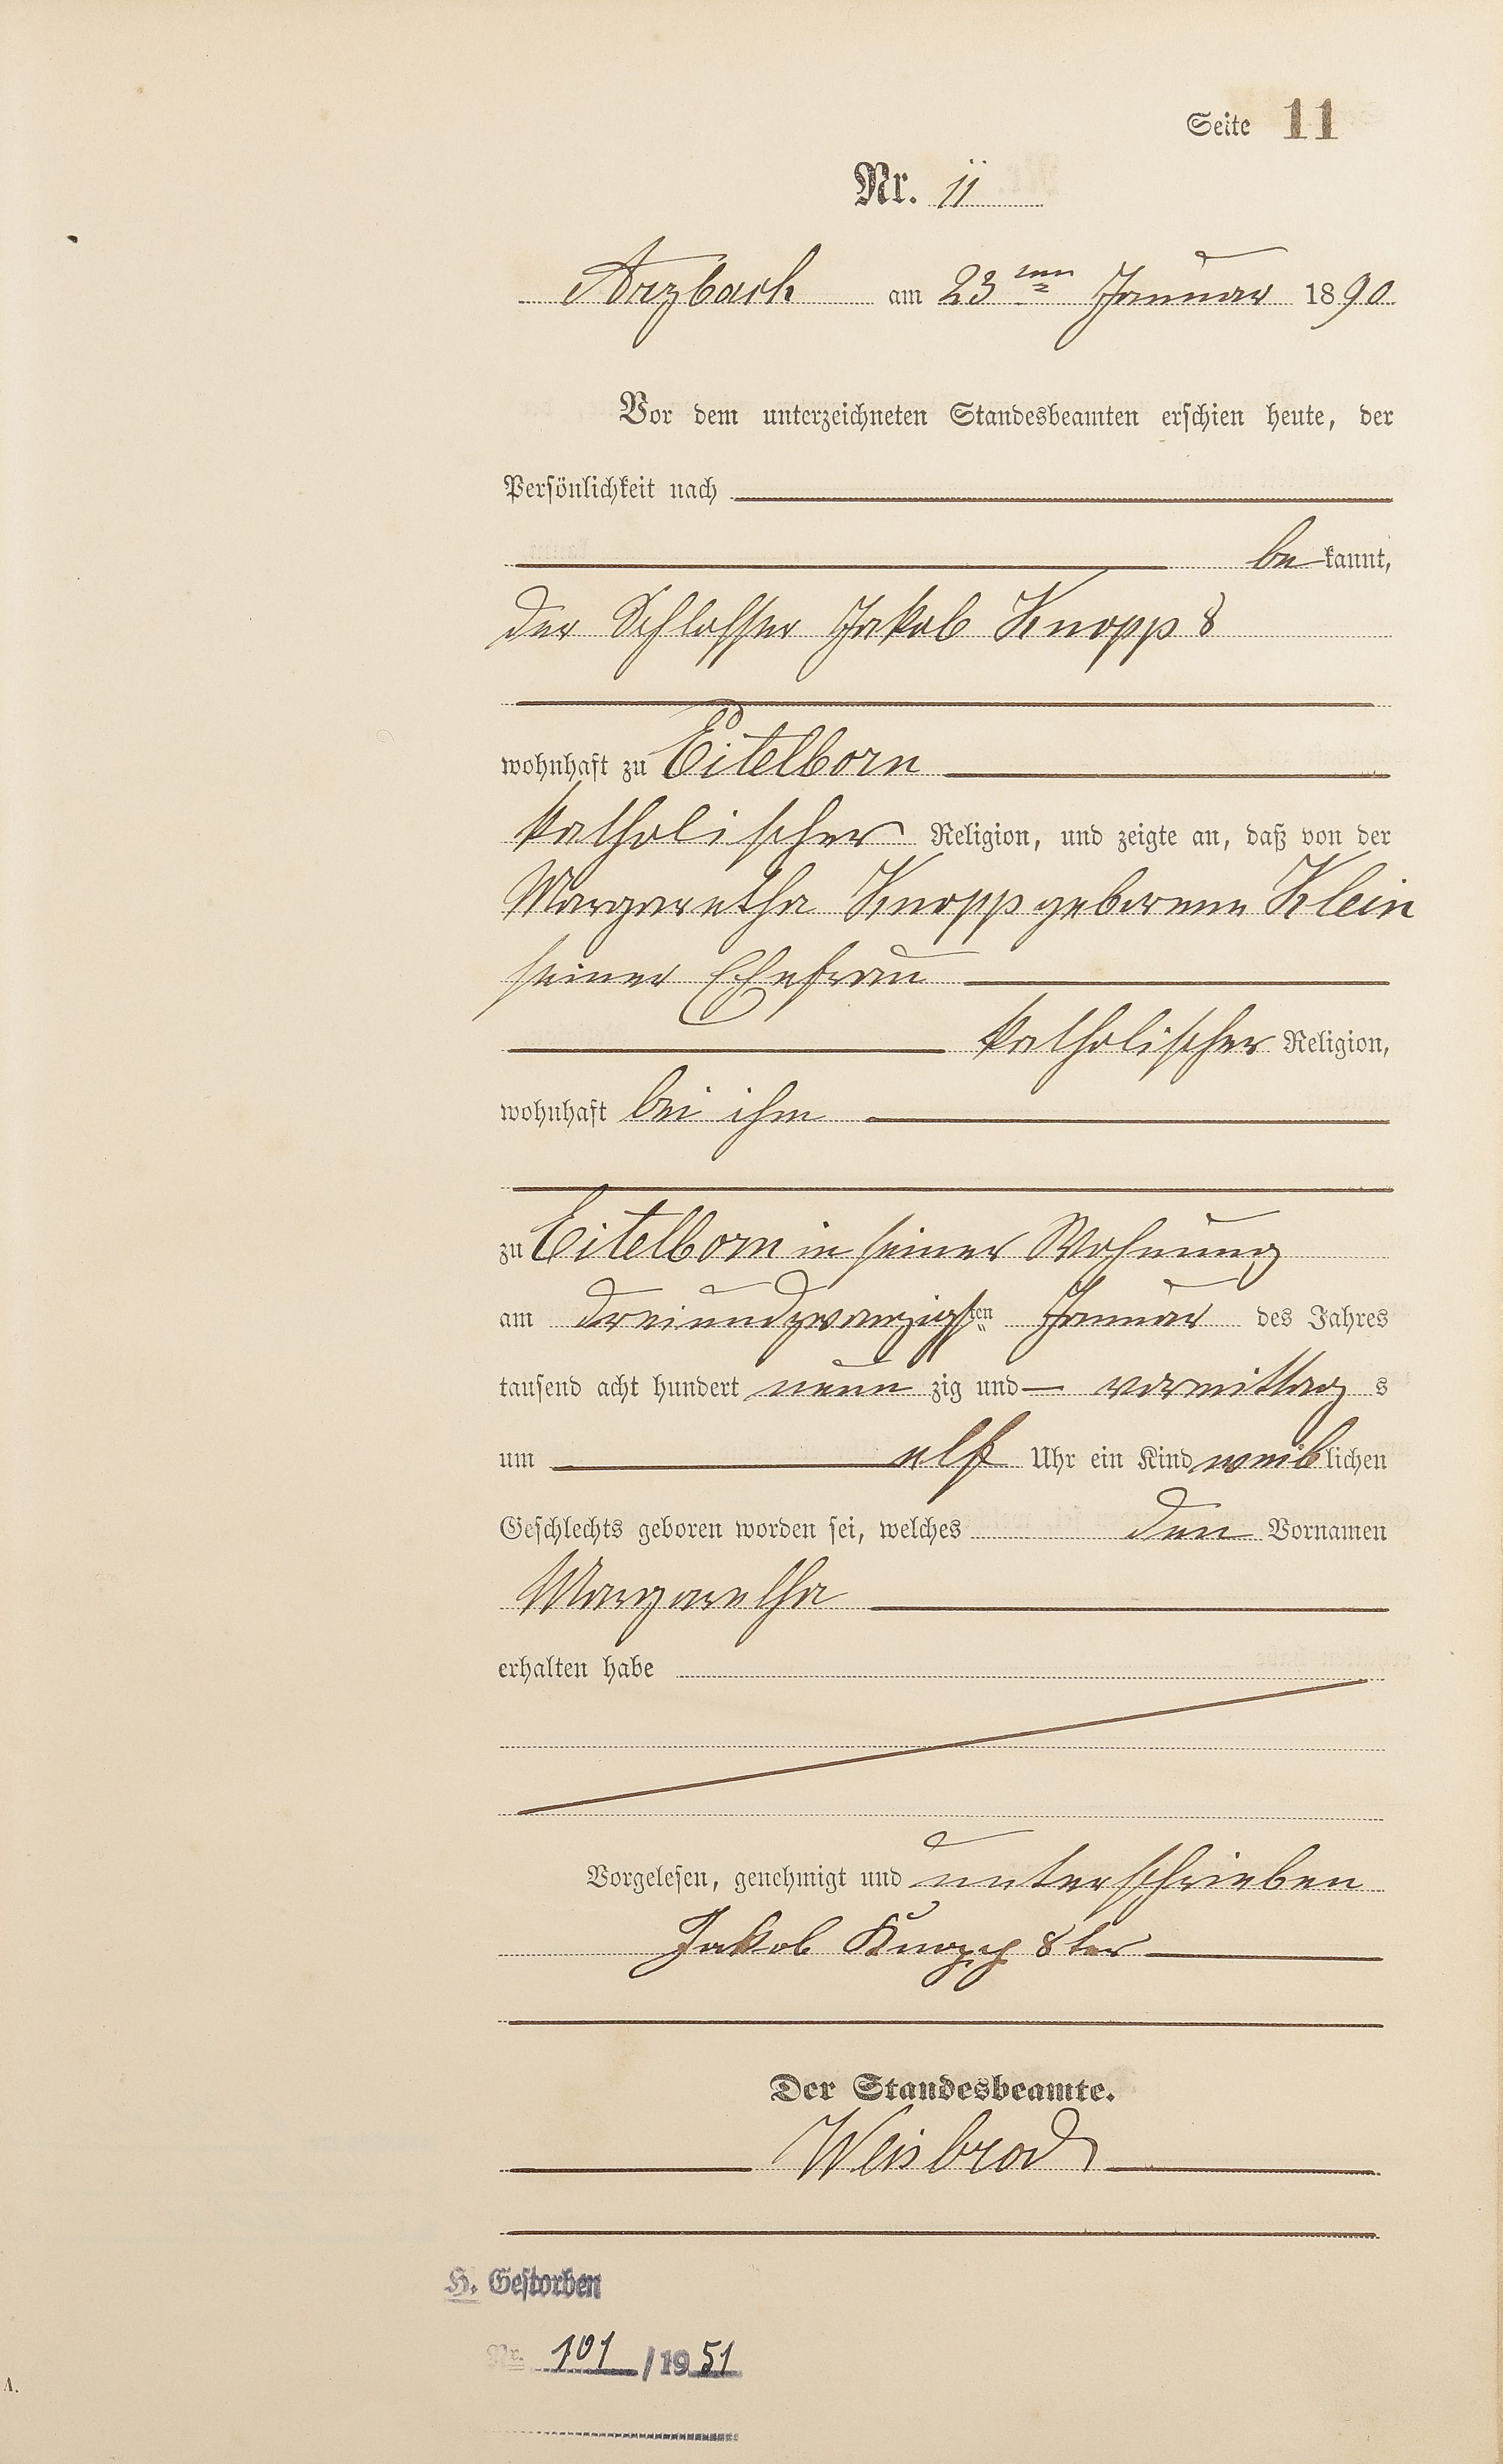 Seite 11
Nr. 11
Arzbach am 23ten Januar 1890.
Vor dem unterzeichneten Standesbeamten erschien heute, der
Persönlichkeit nach
be kannt,
der Schlosser Jakob Knopp 8
wohnhaft zu Eitelborn
katholischer Religion, und zeigte an, daß von der
Margaretha Knopp geborenen Klein
seiner Ehefrau
katholischer Religion,
wohnhaft bei ihm
zu Eitelborn in seiner Wohnung
am dreiundzwanzigsten Januar des Jahres
tausend acht hundert neun zig und — vormittag s
um elf Uhr ein Kind weiblichen
Geschlechts geboren worden sei, welches den Vornamen
Margaretha
erhalten habe
Vorgelesen, genehmigt und unterschrieben
Jakob Knopp 8ter
Der Standesbeamte.
Weisbrod
H. Gestorben
Nr. 101/1951
A.